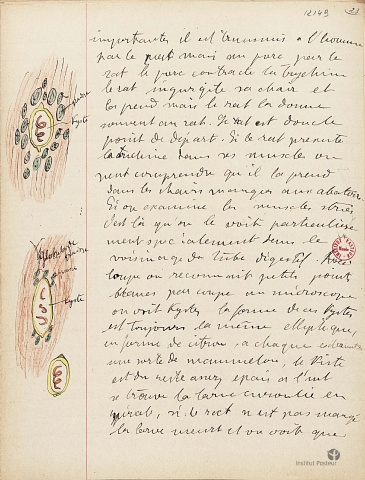 12149
21
importantes il est transmis a l'homme
par le porc mais au porc par le
rat le porc contracte la trychine
le rat ingurgite sa chair et
la prend mais le rat la donne
souvent au rat. Le rat est donc le
point de départ. Si le rat presente
la trichine dans ses muscles on
peut comprendre qu'il la prend
dans les chairs mangées aux abattoirs
Si on examine les muscles striés
c'est là qu'on le voit particulière
ment specialement dans le
voisinage du tube digestif. Avec
loupe on reconnait petits points
blancs par coupe au microscope
on voit Kystes la forme de ces Kystes
est toujours la même elliptique,
en forme de citron, a chaque extremite
une sorte de mammelon, le Kiste
est du reste assez épais a l'int
se trouve la larve enroulée en
spirale, si le rat n'est pas mangé
la larve meurt et on voit que
graisse
Kyste
graisse
Kyste
Institut Pasteur